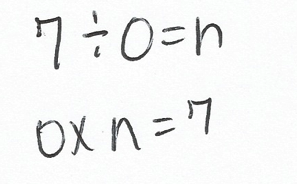 7÷0=n
0×n=7